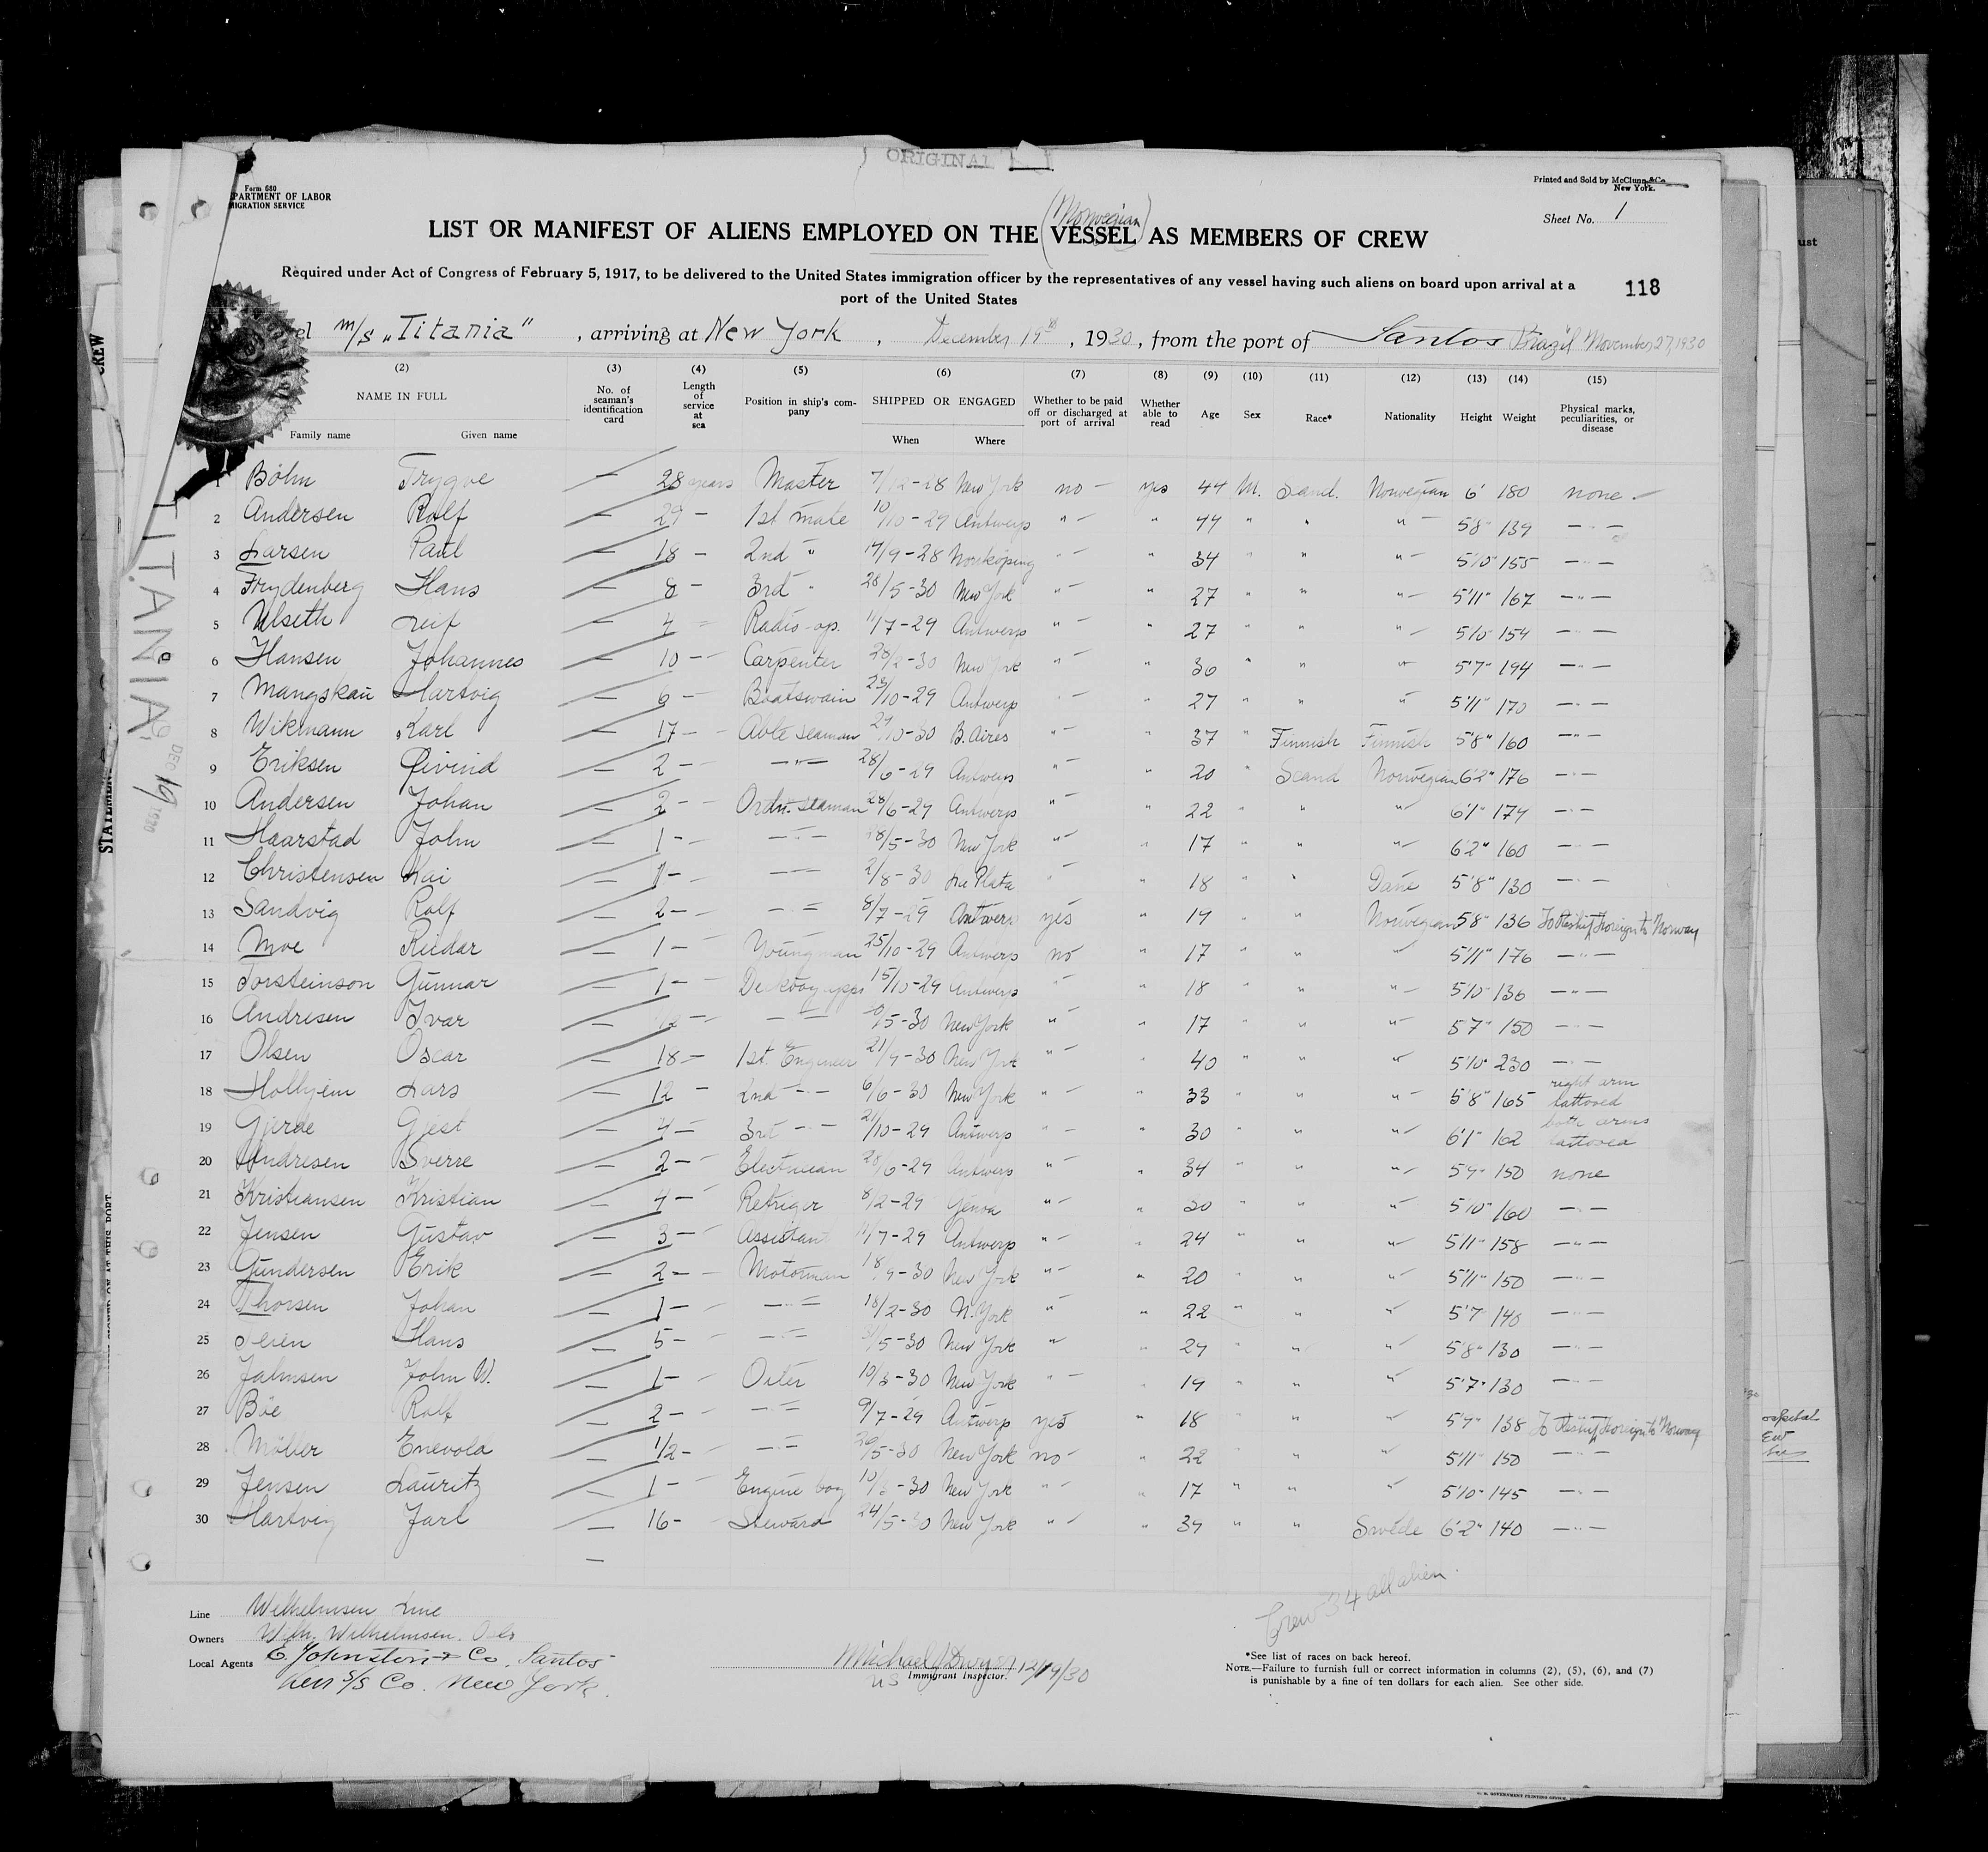 ORIGINAL
Form 680
PARTMENT OF LABOR
MIGRATION SERVICE
Printed and Sold by McClunn & Co.
New York.
Sheet No. 1
(Norwegian)
LIST OR MANIFEST OF ALIENS EMPLOYED ON THE VESSEL AS MEMBERS OF CREW
Required under Act of Congress of February 5, 1917, to be delivered to the United States immigration officer by the representatives of any vessel having such aliens on board upon arrival at a
port of the United States
118
el m/s „Titania“, arriving at New York, December 19th, 1930, from the port of Santos Brazil November 27, 1930
(2) (3) (4) (5) (6) (7) (8) (9) (10) (11) (12) (13) (14) (15)
NAME IN FULL No. of seaman's identification card Length of service at sea Position in ship's company SHIPPED OR ENGAGED Whether to be paid off or discharged at port of arrival Whether able to read Age Sex Race* Nationality Height Weight Physical marks, peculiarities, or disease
Family name Given name When Where
1 Böhn Trygve — 28 years Master 7/12-28 New York no — yes 44 M. Scand. Norwegian 6' 180 none —
2 Andersen Rolf — 29 — 1st mate 10/10-29 Antwerp " — " 44 " " " — 5'8" 139 — " —
3 Larsen Paul — 18 — 2nd " 14/9-28 Norrköping " — " 34 " " " — 5'10" 155 — " —
4 Frydenberg Hans — 8 — 3rd " 28/5-30 New York " — " 27 " " " — 5'11" 167 — " —
5 Ulseth Leif — 4 — Radio-op. 11/7-29 Antwerp " — " 27 " " " — 5'10" 154 — " —
6 Hansen Johannes — 10 — Carpenter 28/2-30 New York " — " 30 " " " — 5'7" 194 — " —
7 Mangskau Hartvig — 6 — Boatswain 23/10-29 Antwerp " — " 27 " " " 5'11" 170 — " —
8 Wikmann Karl — 17 — Able seaman 29/10-30 B. Aires " — " 37 " Finnish Finnish 5'8" 160 — " —
9 Eriksen Øivind — 2 — — " — 28/6-29 Antwerp " — " 20 " Scand Norwegian 6'2" 176 — " —
10 Andersen Johan — 2 — Ordn. seaman 28/6-29 Antwerp " — " 22 " " " 6'1" 174 — " —
11 Haarstad John — 1 — — " — 28/5-30 New York " — " 17 " " " — 6'2" 160 — " —
12 Christensen Kai — 1 — — " — 2/8-30 La Plata " — " 18 " " Dane 5'8" 130 — " —
13 Sandvig Rolf — 2 — — " — 8/7-29 Antwerp yes " 19 " " Norwegian 5'8" 136 To Reship Foreign to Norway
14 Moe Reidar — 1 — Youngman 25/10-29 Antwerp no " 17 " " " 5'11" 176 — " —
15 Torsteinson Gunnar — 1 — Deckboy 15/10-29 Antwerp " — " 18 " " " — 5'10" 136 — " —
16 Andresen Ivar — — " — /5-30 New York " — " 17 " " " 5'7" 150 — " —
17 Olsen Oscar — 18 — 1st Engineer 21/9-30 New York " — " 40 " " " 5'10" 230 — " —
18 Lars — 12 — 2nd — " — 6/6-30 New York " — " 33 " " " — 5'8" 165 right arm tattooed
19 Gjerde Gjest — 4 — 3rd — " — 21/10-29 Antwerp " — " 30 " " " 6'1" 162 both arms tattooed
20 Andresen Sverre — 2 — Electrician 28/6-29 Antwerp " — " 34 " " " 5'9" 150 none
21 Kristiansen Kristian — 4 — Refriger 8/2-29 Genoa " — " 20 " " " 5'10" 160 — " —
22 Jensen Gustav — 3 — Assistant 11/7-29 Antwerp " — " 24 " " " 5'11" 158 — " —
23 Gundersen Erik — 2 — Motorman 18/9-30 New York " — " 20 " " " 5'11" 150 — " —
24 Thorsen Johan — 1 — — " — 18/2-30 N. York " — " 22 " " " 5'7" 140 — " —
25 Hans — 5 — — " — /5-30 New York " — " 29 " " " 5'8" 130 — " —
26 Jahnsen John W. — 1 — Oiler 10/3-30 New York " — " 19 " " " 5'7" 130 — " —
27 Böe Rolf — 2 — — " — 9/7-29 Antwerp yes " 18 " " " 5'9" 138 To Reship Foreign to Norway
28 Möller Enevold — 1/2 — — " — 26/5-30 New York no — " 22 " " 5'11" 150 — " —
29 Jensen Lauritz — 1 — Engine boy 10/3-30 New York " — " 17 " " " 5'10" 145 — " —
30 Hartvig Jarl — 16 — Steward 24/5-30 New York " — " 39 " " Swede 6'2" 140 — " —
—
Crew 34 all alien.
Line Wilhelmsen Line
Owners Wilh. Wilhelmsen. Oslo
Local Agents E. Johnston & Co. Santos
S/S Co. New York.
Michael J Dwyer 12/19/30
US Immigrant Inspector.
*See list of races on back hereof.
NOTE.—Failure to furnish full or correct information in columns (2), (5), (6), and (7)
is punishable by a fine of ten dollars for each alien. See other side.
TITANIA
DEC 19 1930
CREW
ust